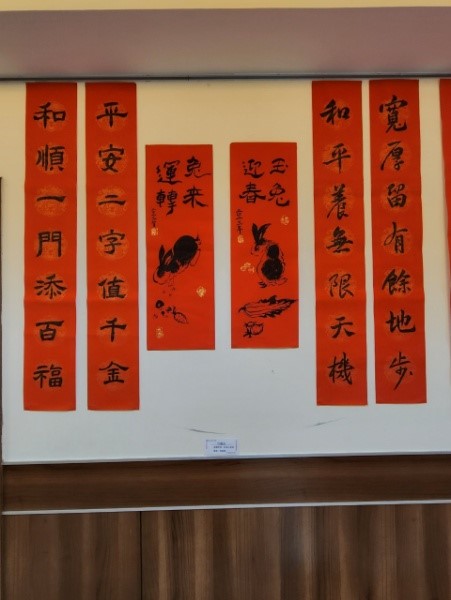 寬厚留有餘地步
和平養無限天機
玉兔
迎春
兔來
運轉
平安二字值千金
和順一門添百福